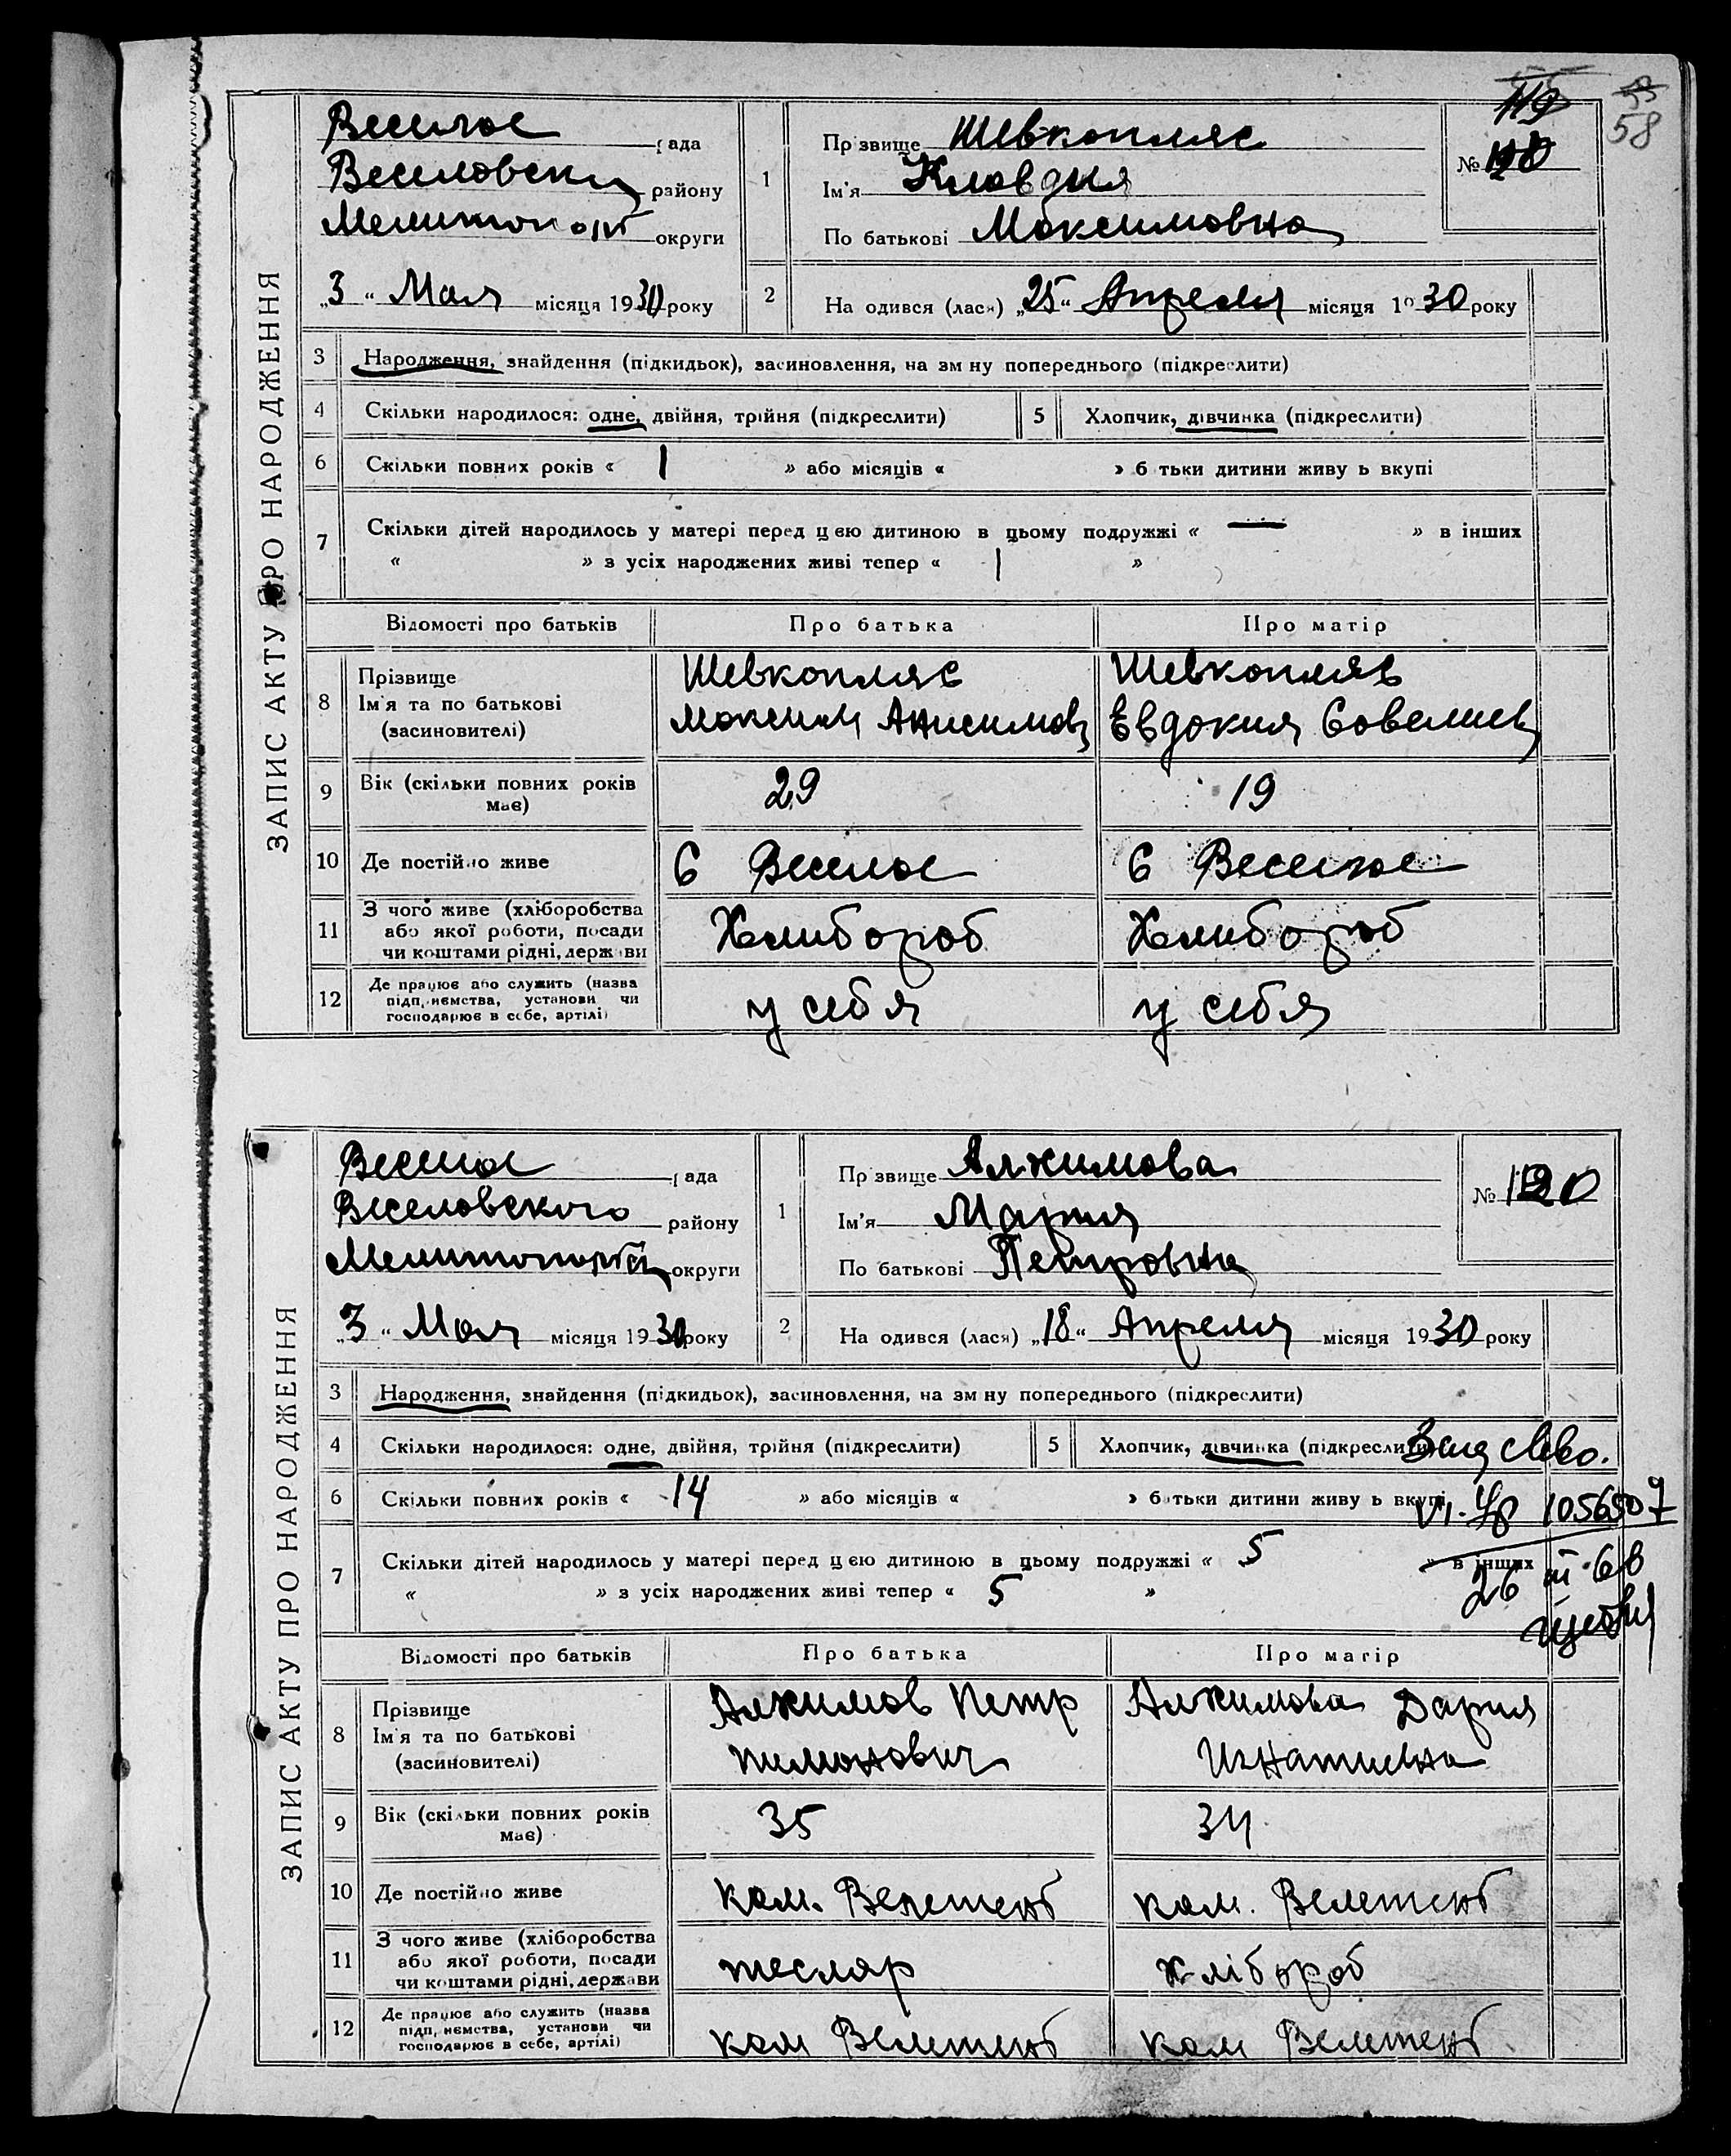 58
Веселое рада
Веселовский району
Мелитоп округи
„3“ Мая місяця 1930 року
1
Прізвище Шевкопляс
Ім'я Клавдия
По батькові Максимовна
№
2
На одився (лася) „25“ Апреля місяця 1930 року
ЗАПИС АКТУ ПРО НАРОДЖЕННЯ
3 Народження, знайдення (підкидьок), засиновлення, на зм ну попереднього (підкреслити)
4 Скільки народилося: одне, двійня, трійня (підкреслити)
5 Хлопчик, дівчинка (підкреслити)
6 Скільки повних років « 1 » або місяців « » б тьки дитини живу ь вкупі
7 Скільки дітей народилось у матері перед цєю дитиною в цьому подружжі « — » в інших
« » з усіх народжених живі тепер « 1 »
Відомості про батьків Про батька Про матір
8 Прізвище
Ім'я та по батькові
(засиновителі)
Шевкопляс
Максим Анисимов
Шевкопляс
Евдокия Савелиев
9 Вік (скільки повних років
має)
29
19
10 Де постійно живе
с Веселое
с Веселое
11 З чого живе (хліборобства
або якої роботи, посади
чи коштами рідні, держави
Хлибороб
Хлибороб
12 Де працює або служить (назва
підприємства, установи чи
господарює в себе, артілі)
у себя
у себя
Веселое рада
Веселовского району
Мелитоп округи
„3“ Мая місяця 1930 року
1
Пр звище Алхимова
Ім'я Мария
По батькові Петровна
№ 120
2
На одився (лася) „18“ Апреля місяця 1930 року
ЗАПИС АКТУ ПРО НАРОДЖЕННЯ
3 Народження, знайдення (підкидьок), засиновлення, на зм ну попереднього (підкреслити)
4 Скільки народилося: одне, двійня, трійня (підкреслити)
5 Хлопчик, дівчинка (підкреслити)
6 Скільки повних років « 14 » або місяців « » батьки дитини живу ь вкупі
1056507
7 Скільки дітей народилось у матері перед цєю дитиною в цьому подружжі « 5 » в інших
« » з усіх народжених живі тепер « 5 »
26 III
Відомості про батьків Про батька Про матір
8 Прізвище
Ім'я та по батькові
(засиновителі)
Алхимов Петр
Пимонович
Алхимова Дария
Игнатиевна
9 Вік (скільки повних років
має)
35
34
10 Де постійно живе
ком. Велетень
ком. Велетень
11 З чого живе (хліборобства
або якої роботи, посади
чи коштами рідні, держави
тесляр
хлібороб
12 Де працює або служить (назва
підприємства, установи чи
господарює в себе, артілі)
ком Велетень
ком Велетень